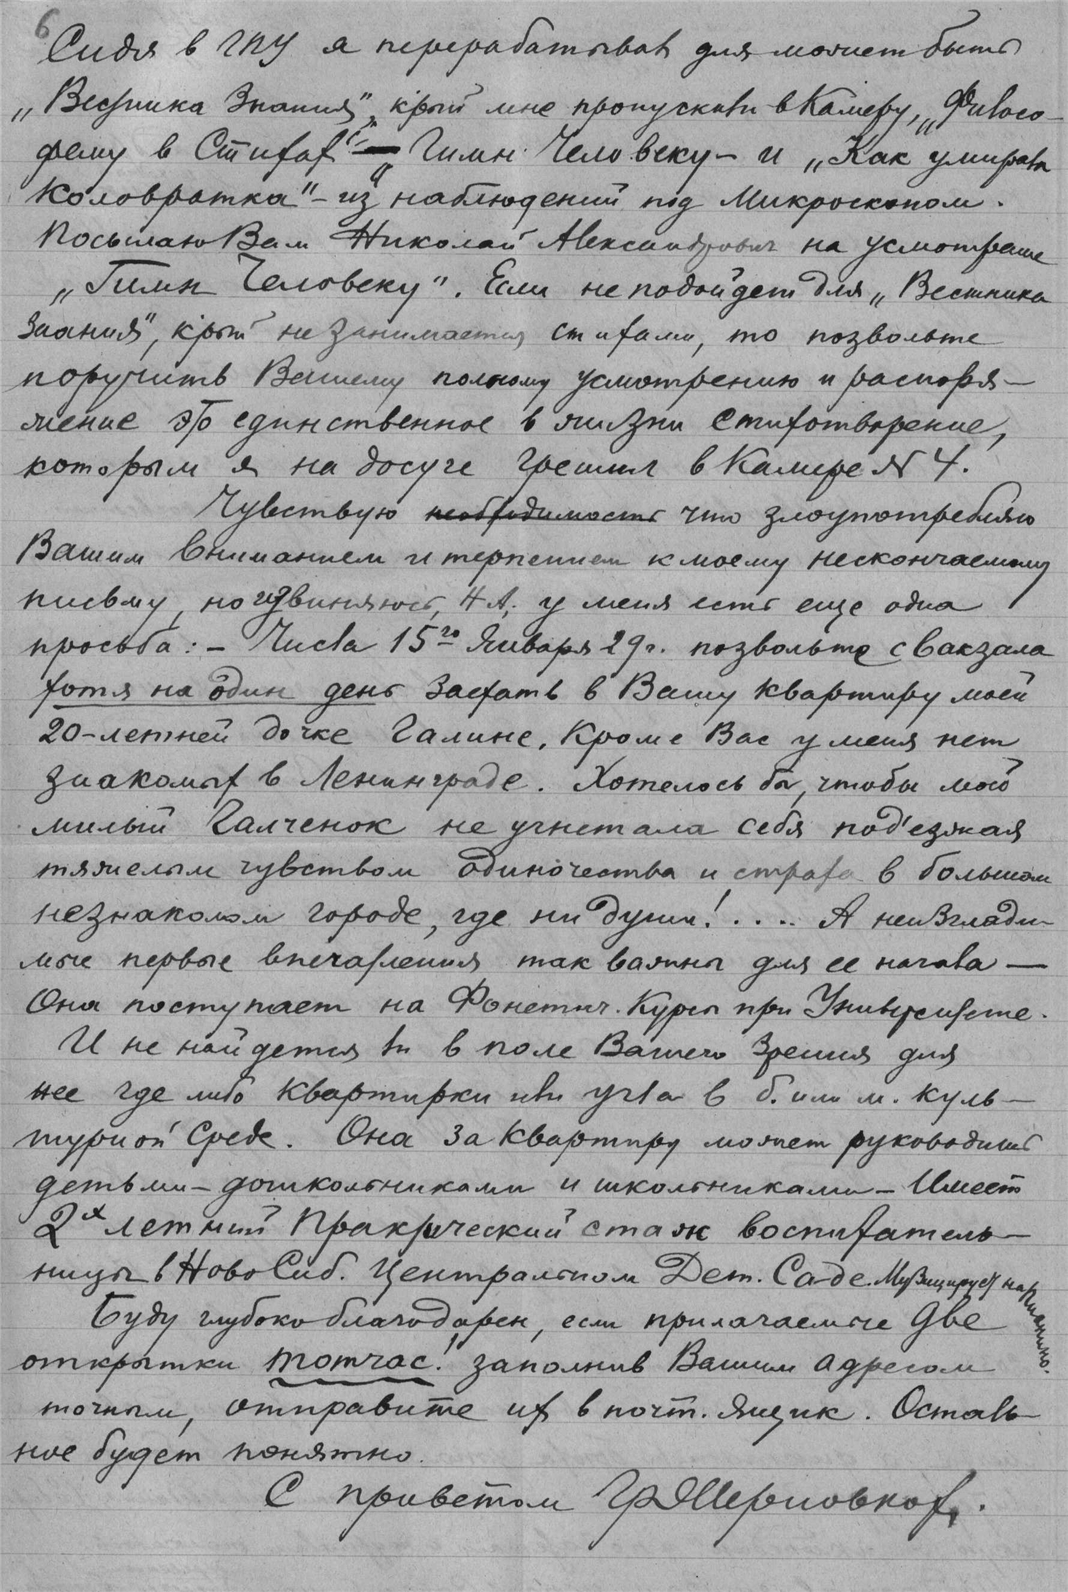 6
Сидя в ГПУ я перерабатывал для может быть
„Вестника Знания", к'рый мне пропускали в Камеру, „Филосо-
фему в Стихах" — „Гимн Человеку — и „Как умирала
Коловратка" — из наблюдений под Микроскопом.
Посылаю Вам Николай Александрович на усмотрение
„Гимн Человеку". Если не подойдет для „Вестника
Знания", к'рый не занимается стихами, то позвольте
поручить Вашему полному усмотрению и распоря-
жение это единственное в жизни стихотворение,
которым я на досуге грешил в Камере № 4.
Чувствую необходимость что злоупотребляю
Вашим вниманием и терпением к моему нескончаемому
письму, но извиняюсь, Н.А., у меня есть еще одна
просьба: – Числа 15го Января 29 г. позвольте с вокзала
хотя на один день заехать в Вашу квартиру моей
20-летней дочке Галине. Кроме Вас у меня нет
знакомых в Ленинграде. Хотелось бы, чтобы мой
милый Галченок не угнетала себя под'езжая
тяжелым чувством одиночества и страха в большом
незнакомом городе, где ни души! . . . . А неизглади-
мые первые впечатления так важны для ее начала —
Она поступает на Фонетич. Курсы при Университете.
И не найдется ли в поле Вашего Зрения для
нее где либо квартирки или угла в б. или м. куль-
турной среде. Она за квартиру может руководить
детьми – дошкольниками и школьниками – Имеет
2х летний Практический стаж воспитатель-
ницы в НовоСиб. Центральном Дет. Саде. Музицирует на Пианино.
Буду глубоко благодарен, если прилагаемые две
открытки тотчас! заполнив Вашим адресом
точным, отправите их в почт. ящик. Осталь-
ное будет понятно.
С приветом